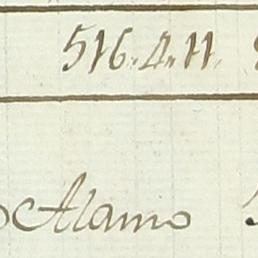 516.4.11.
Alamo